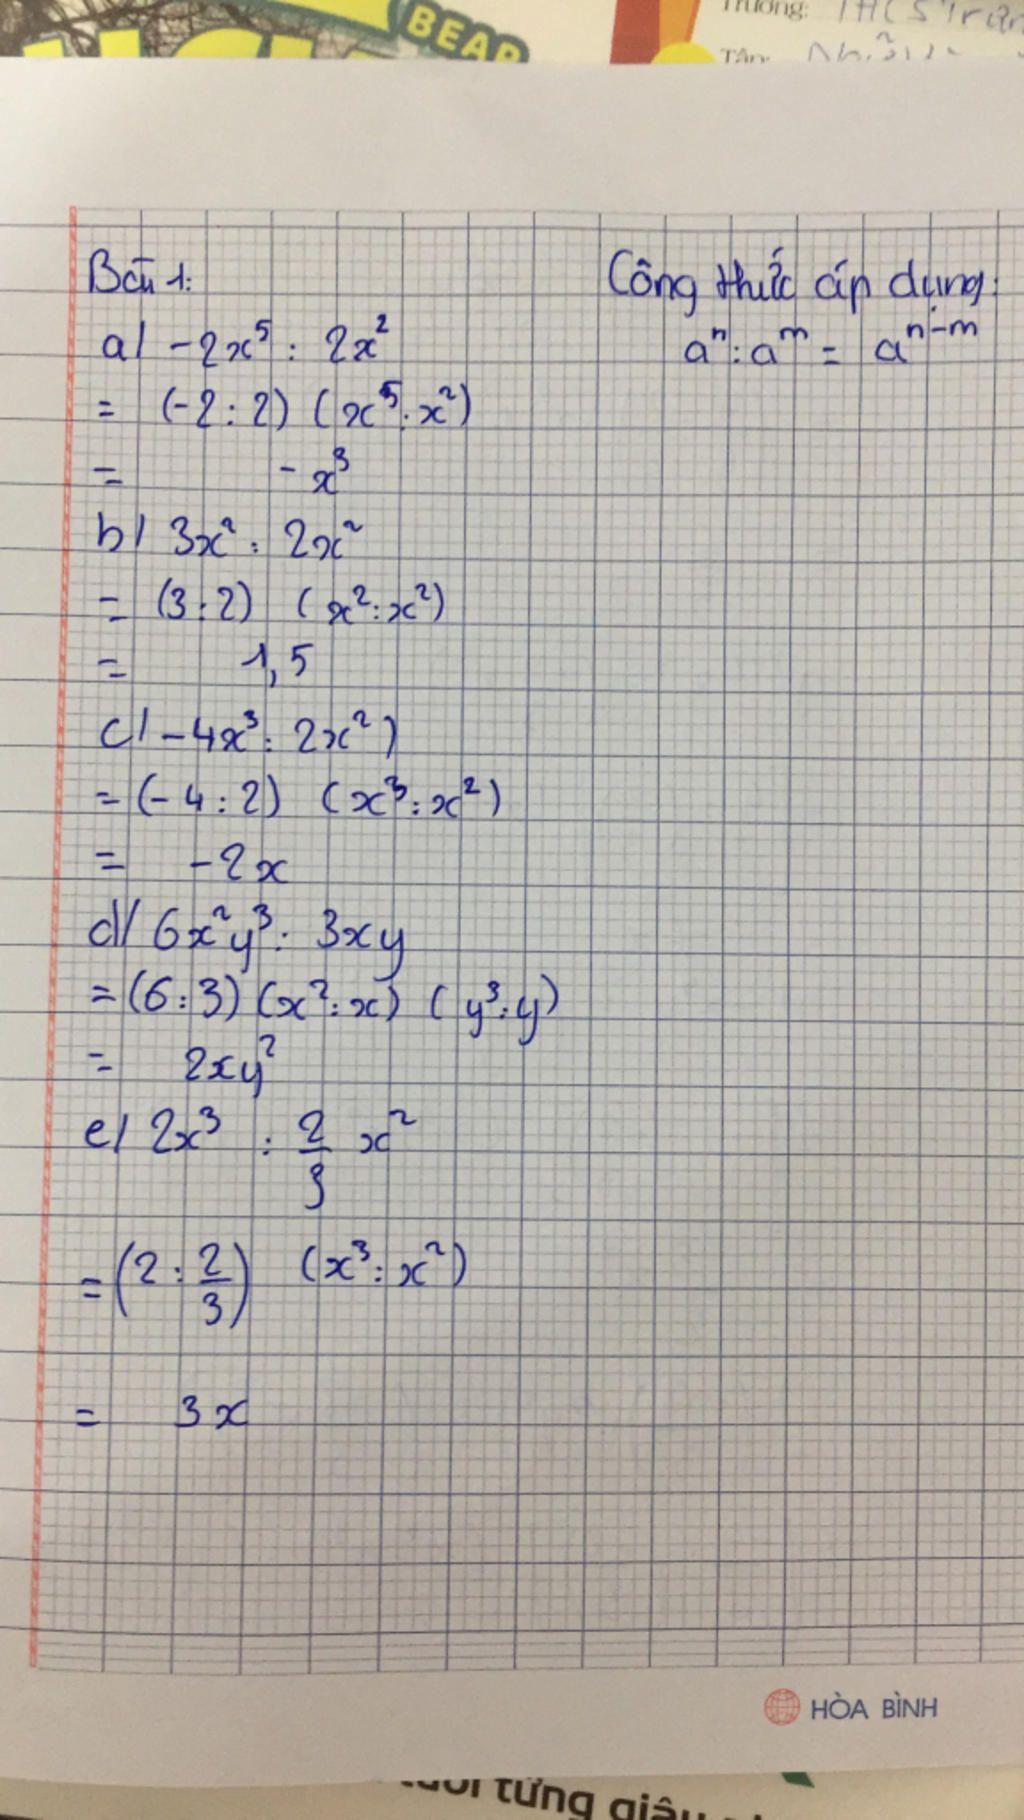 BEAR
Trường: THCS Trần
Tân:
Bài 1:
Công thức áp dụng:
a/ -2x⁵ : 2x²
aⁿ : aᵐ = aⁿ⁻ᵐ
= (-2 : 2) (x⁵ : x²)
= -x³
b/ 3x² : 2x²
= (3 : 2) (x² : x²)
= 1,5
c/ -4x³ : 2x²)
= (-4 : 2) (x³ : x²)
= -2x
d/ 6x²y³ : 3xy
= (6 : 3) (x² : x) (y³ : y)
= 2xy²
e/ 2x³ : 2/3 x²
= (2 : 2/3) (x³ : x²)
= 3x
HÒA BÌNH
từng